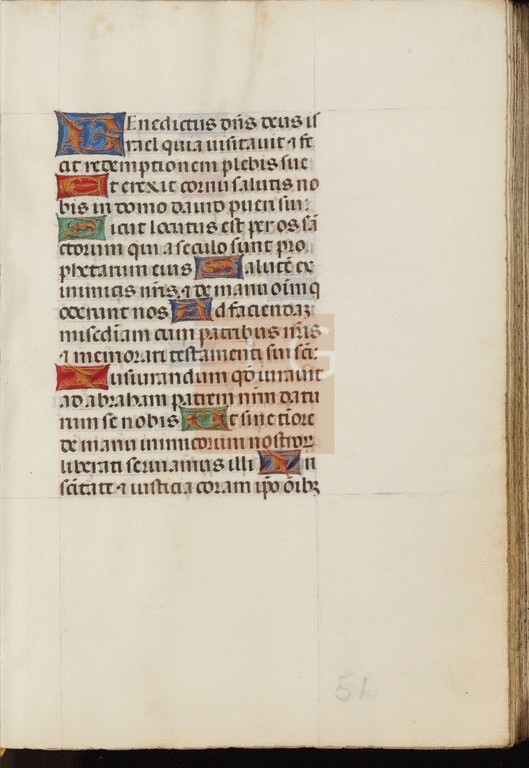 Benedictus dn̄s deus is
rael quia uisitauit ⁊ fe
cit redemptionem plebis sue
Et erexit cornu salutis no
bis in domo dauid pueri sui:
Sicut locutus est per os sā
ctorum qui a seculo sunt pro
phetarum eius Salutē ex
inimicis nr̄is, ⁊ de manu oīm q
oderunt nos Ad faciendaꝫ
misedīam cum patribus nr̄is
⁊ memorari testamenti sui sc̄i:
Iusiurandum qđ iurauit
ad abraham patrem nr̄m datu
rum se nobis Ut sine tīore
de manu inimicorum nostroꝝ
liberati seruiamus illi In
sc̄itate ⁊ iusticia coram ip̄o oīibꝫ